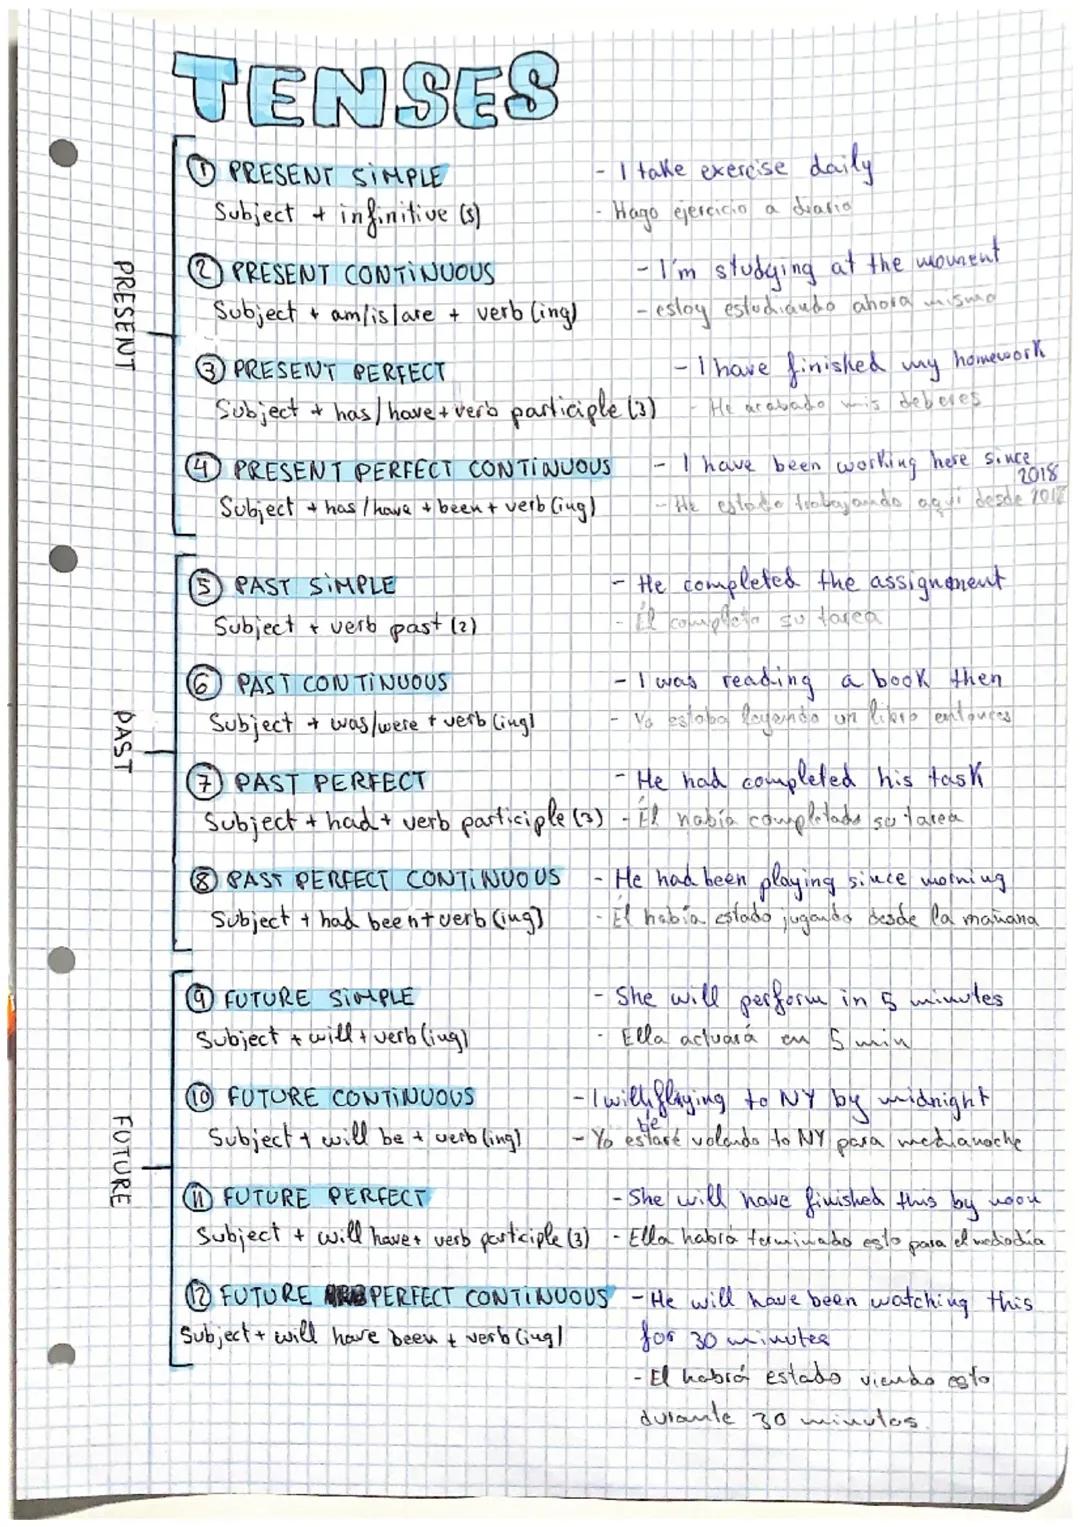 TENSES
PRESENT
① PRESENT SIMPLE
Subject + infinitive (s)
- I take exercise daily
- Hago ejercicio a diario
② PRESENT CONTINUOUS
Subject + am/is/are + verb (ing)
- I'm studying at the moment
- estoy estudiando ahora mismo
③ PRESENT PERFECT
Subject + has/have + verb participle (3)
- I have finished my homework
- He acabado mis deberes
④ PRESENT PERFECT CONTINUOUS
Subject + has/have + been + verb (ing)
- I have been working here since
2018
- He estado trabajando aquí desde 2018
PAST
⑤ PAST SIMPLE
Subject + verb past (2)
- He completed the assignment
- Él completo su tarea
⑥ PAST CONTINUOUS
Subject + was/were + verb (ing)
- I was reading a book then
- Yo estaba leyendo un libro entonces
⑦ PAST PERFECT
Subject + had + verb participle (3)
- He had completed his task
- Él había completado su tarea
⑧ PAST PERFECT CONTINUOUS
Subject + had been + verb (ing)
- He had been playing since morning
- Él había estado jugando desde la mañana
FUTURE
⑨ FUTURE SIMPLE
Subject + will + verb (ing)
- She will perform in 5 minutes
- Ella actuará en 5 min
⑩ FUTURE CONTINUOUS
Subject + will be + verb (ing)
- I will be flaying to NY by midnight
- Yo estaré volando to NY para medianoche
⑪ FUTURE PERFECT
Subject + will have + verb participle (3)
- She will have finished this by noon
- Ella habrá terminado esto para el mediodía
⑫ FUTURE PERFECT CONTINUOUS
Subject + will have been + verb (ing)
- He will have been watching this
for 30 minutes
- El habrá estado viendo esto
durante 30 minutos.